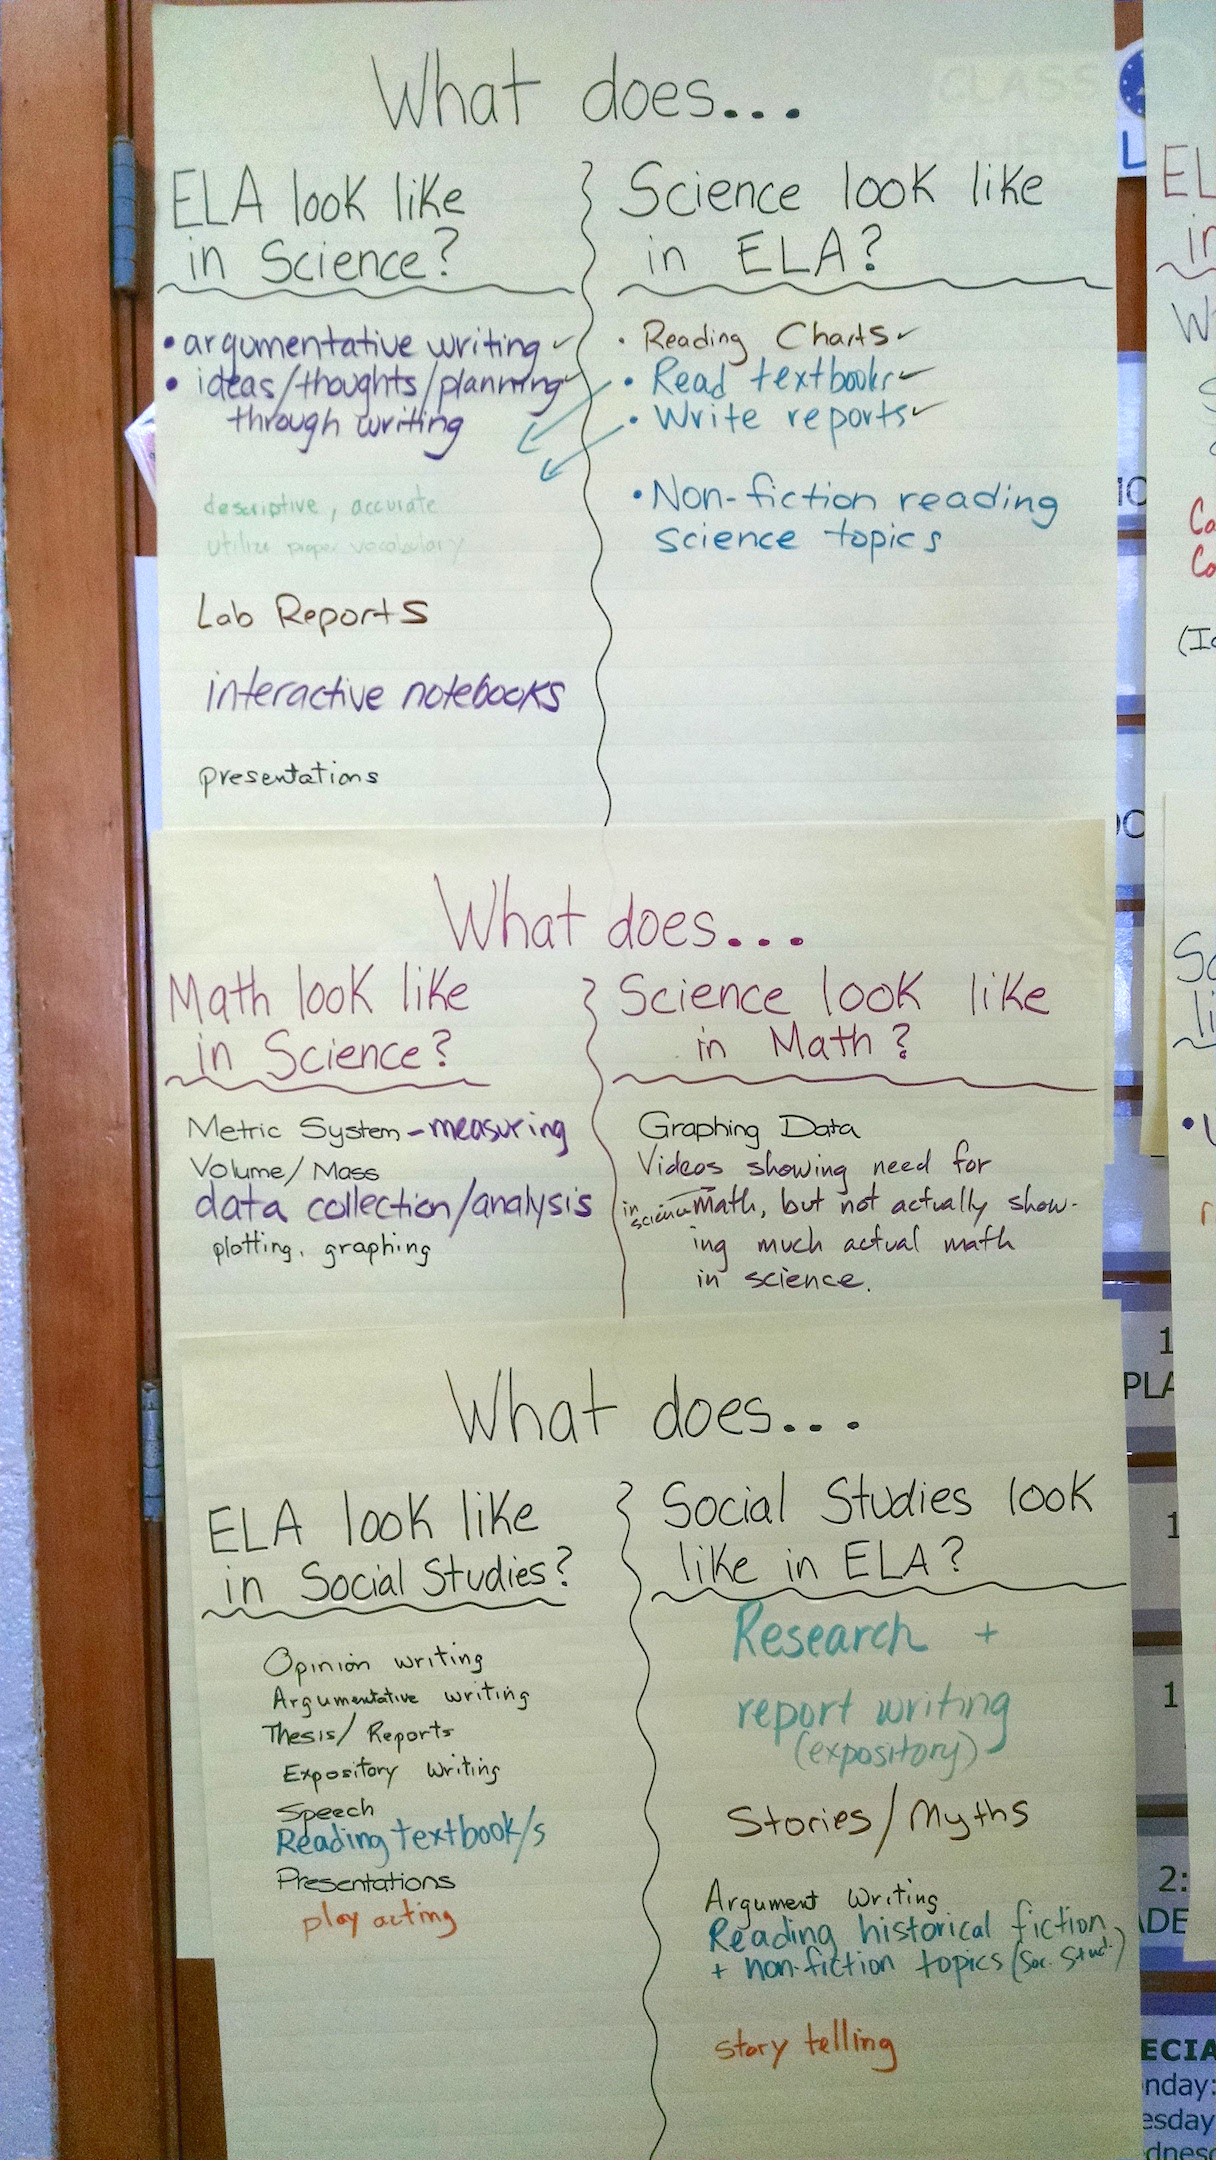 What does...
ELA look like
in Science?
• argumentative writing ✓
• ideas/thoughts/planning ✓
through writing
descriptive, accurate
utilize proper vocabulary
Lab Reports
interactive notebooks
presentations
Science look like
in ELA?
• Reading Charts ✓
• Read textbooks ✓
• Write reports ✓
• Non-fiction reading
science topics
What does...
Math look like
in Science?
Metric System - measuring
Volume/Mass
data collection/analysis
plotting, graphing
Science look like
in Math?
Graphing Data
Videos showing need for
in science math, but not actually show-
ing much actual math
in science.
What does...
ELA look like
in Social Studies?
Opinion writing
Argumentative writing
Thesis/Reports
Expository Writing
Speech
Reading textbook/s
Presentations
play acting
Social Studies look
like in ELA?
Research +
report writing
(expository)
Stories/Myths
Argument Writing
Reading historical fiction
+ non-fiction topics (Soc. Stud.)
story telling
CLASS
EL
in
(I
1
PLA
1
1
2:
ADE
ECIA
nday:
esday
dnes